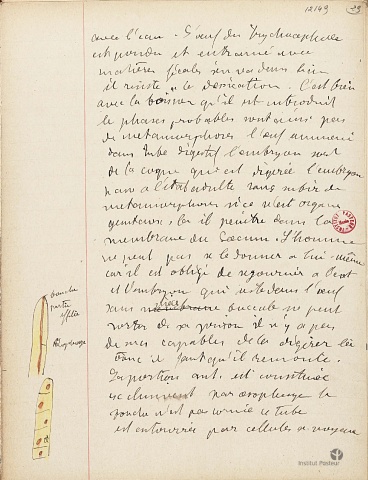 12149
29
avec l'eau. L'œuf du Trychocephale
est pondu et entrainé avec
matières fécales s'en va dans l'eau
il résiste à la desiccation. C'est bien
avec la boisson qu'il est introduit
le phases probables sont ainsi pas
de métamorphoses l'œuf ammené
dans tube digestif l'embryon sort
de la coque qui est digérée l'embryon
passe à l'état adulte sans subir de
métamorphoses si ce n'est organes
genitaux; là il pénètre dans la
membrane du Caecum. L'homme
ne peut pas se le donner à lui-même
car il est obligé de séjourner à l'ext
et l'embryon qui reste dans l'œuf
sans buccale ne peut
sortir de sa prison il n'y a pas
de sucs capables de la digérer là
donc il faut qu'il remonte.
La portion ant. est constituée
exclusivement par œsophage la
bouche n'est pas armée ce tube
est entourée par cellules
bouche
partie
effilée
œsophage
Institut Pasteur